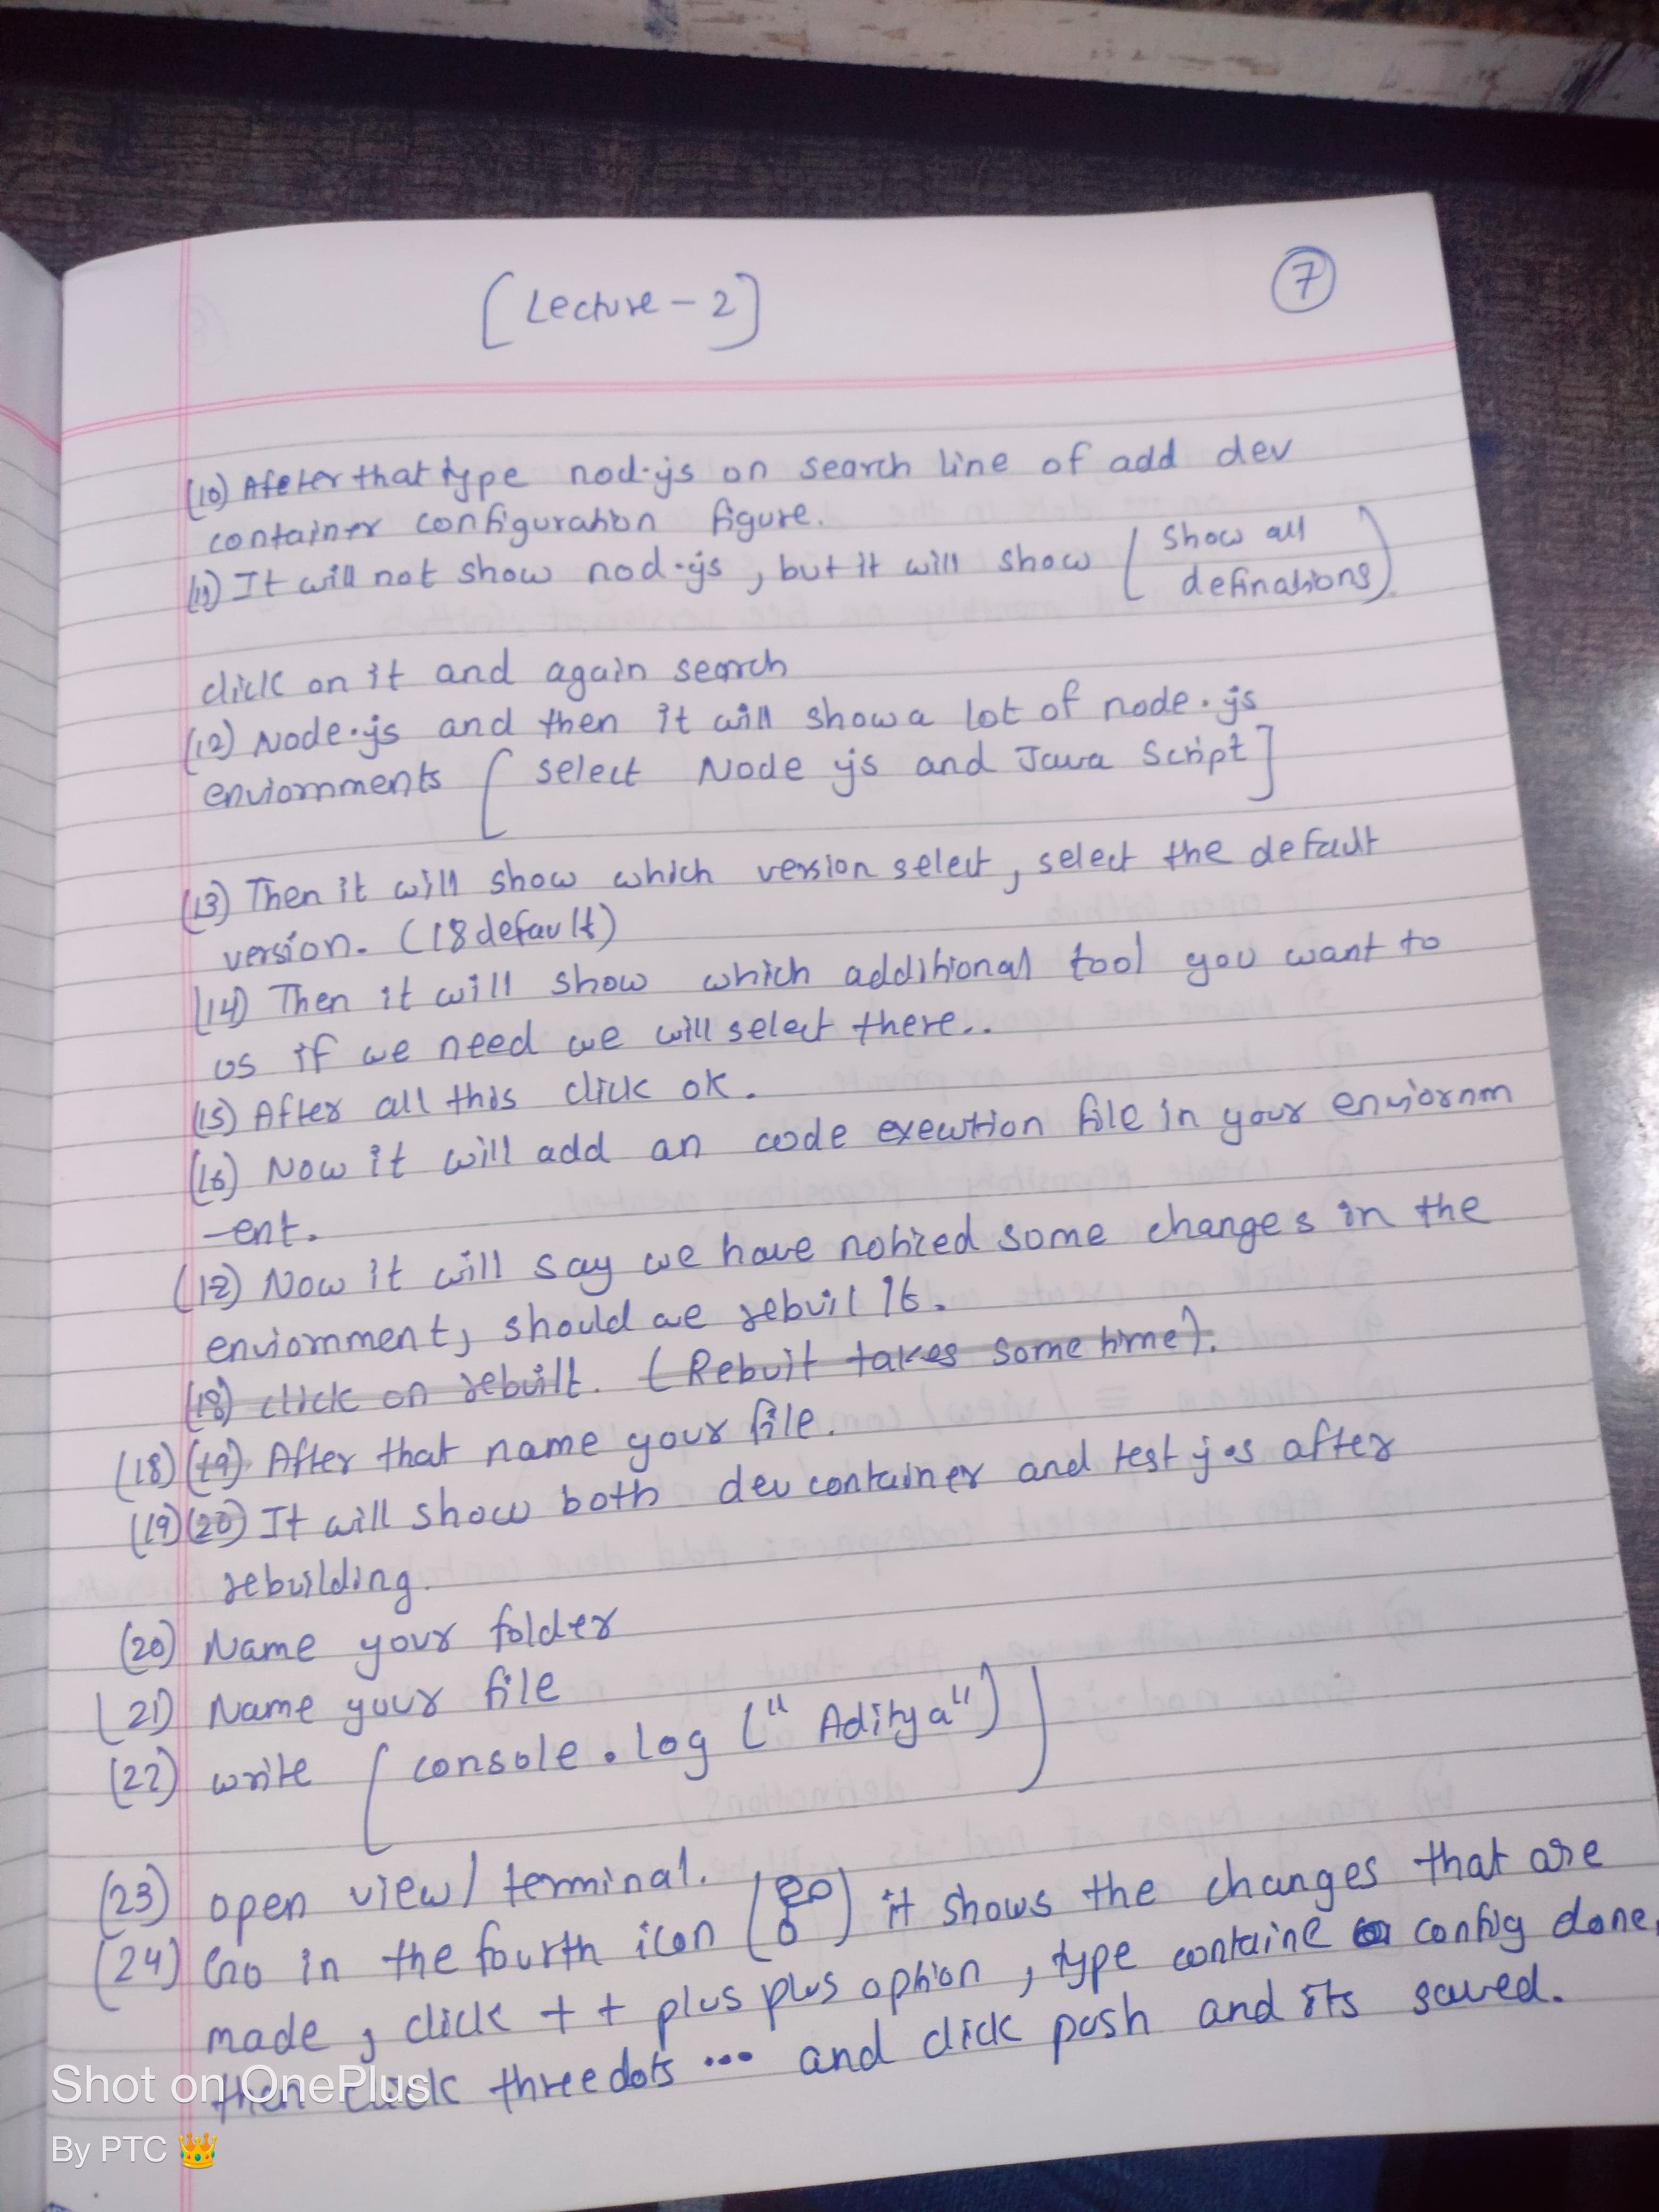 [Lecture - 2]
7
(10) Afeter that type nod.js on search line of add dev
container configuration figure.
(11) It will not show nod.js, but it will show (show all
definations)
click on it and again search
(12) Node.js and then it will show a lot of node.js
enviornments [select Node js and Java Script]
(13) Then it will show which version select, select the default
version. (18 default)
(14) Then it will show which additional tool you want to
us if we need we will select there..
(15) After all this click ok.
(16) Now it will add an code execution file in your enviornm
-ent.
(17) Now it will say we have noticed some changes in the
enviornment, should we rebuil It.
(18) click on rebuilt. (Rebuit takes some time).
(18) (19) After that name your file.
(19) (20) It will show both dev container and test js after
rebuilding.
(20) Name your folder
(21) Name your file
(22) write [console.log ("Aditya")]
(23) open view/ terminal.
(24) Go in the fourth icon ( ) it shows the changes that are
made, click + + plus plus option, type containe config done,
then click three dots ... and click push and its saved.
Shot on OnePlus
By PTC 👑